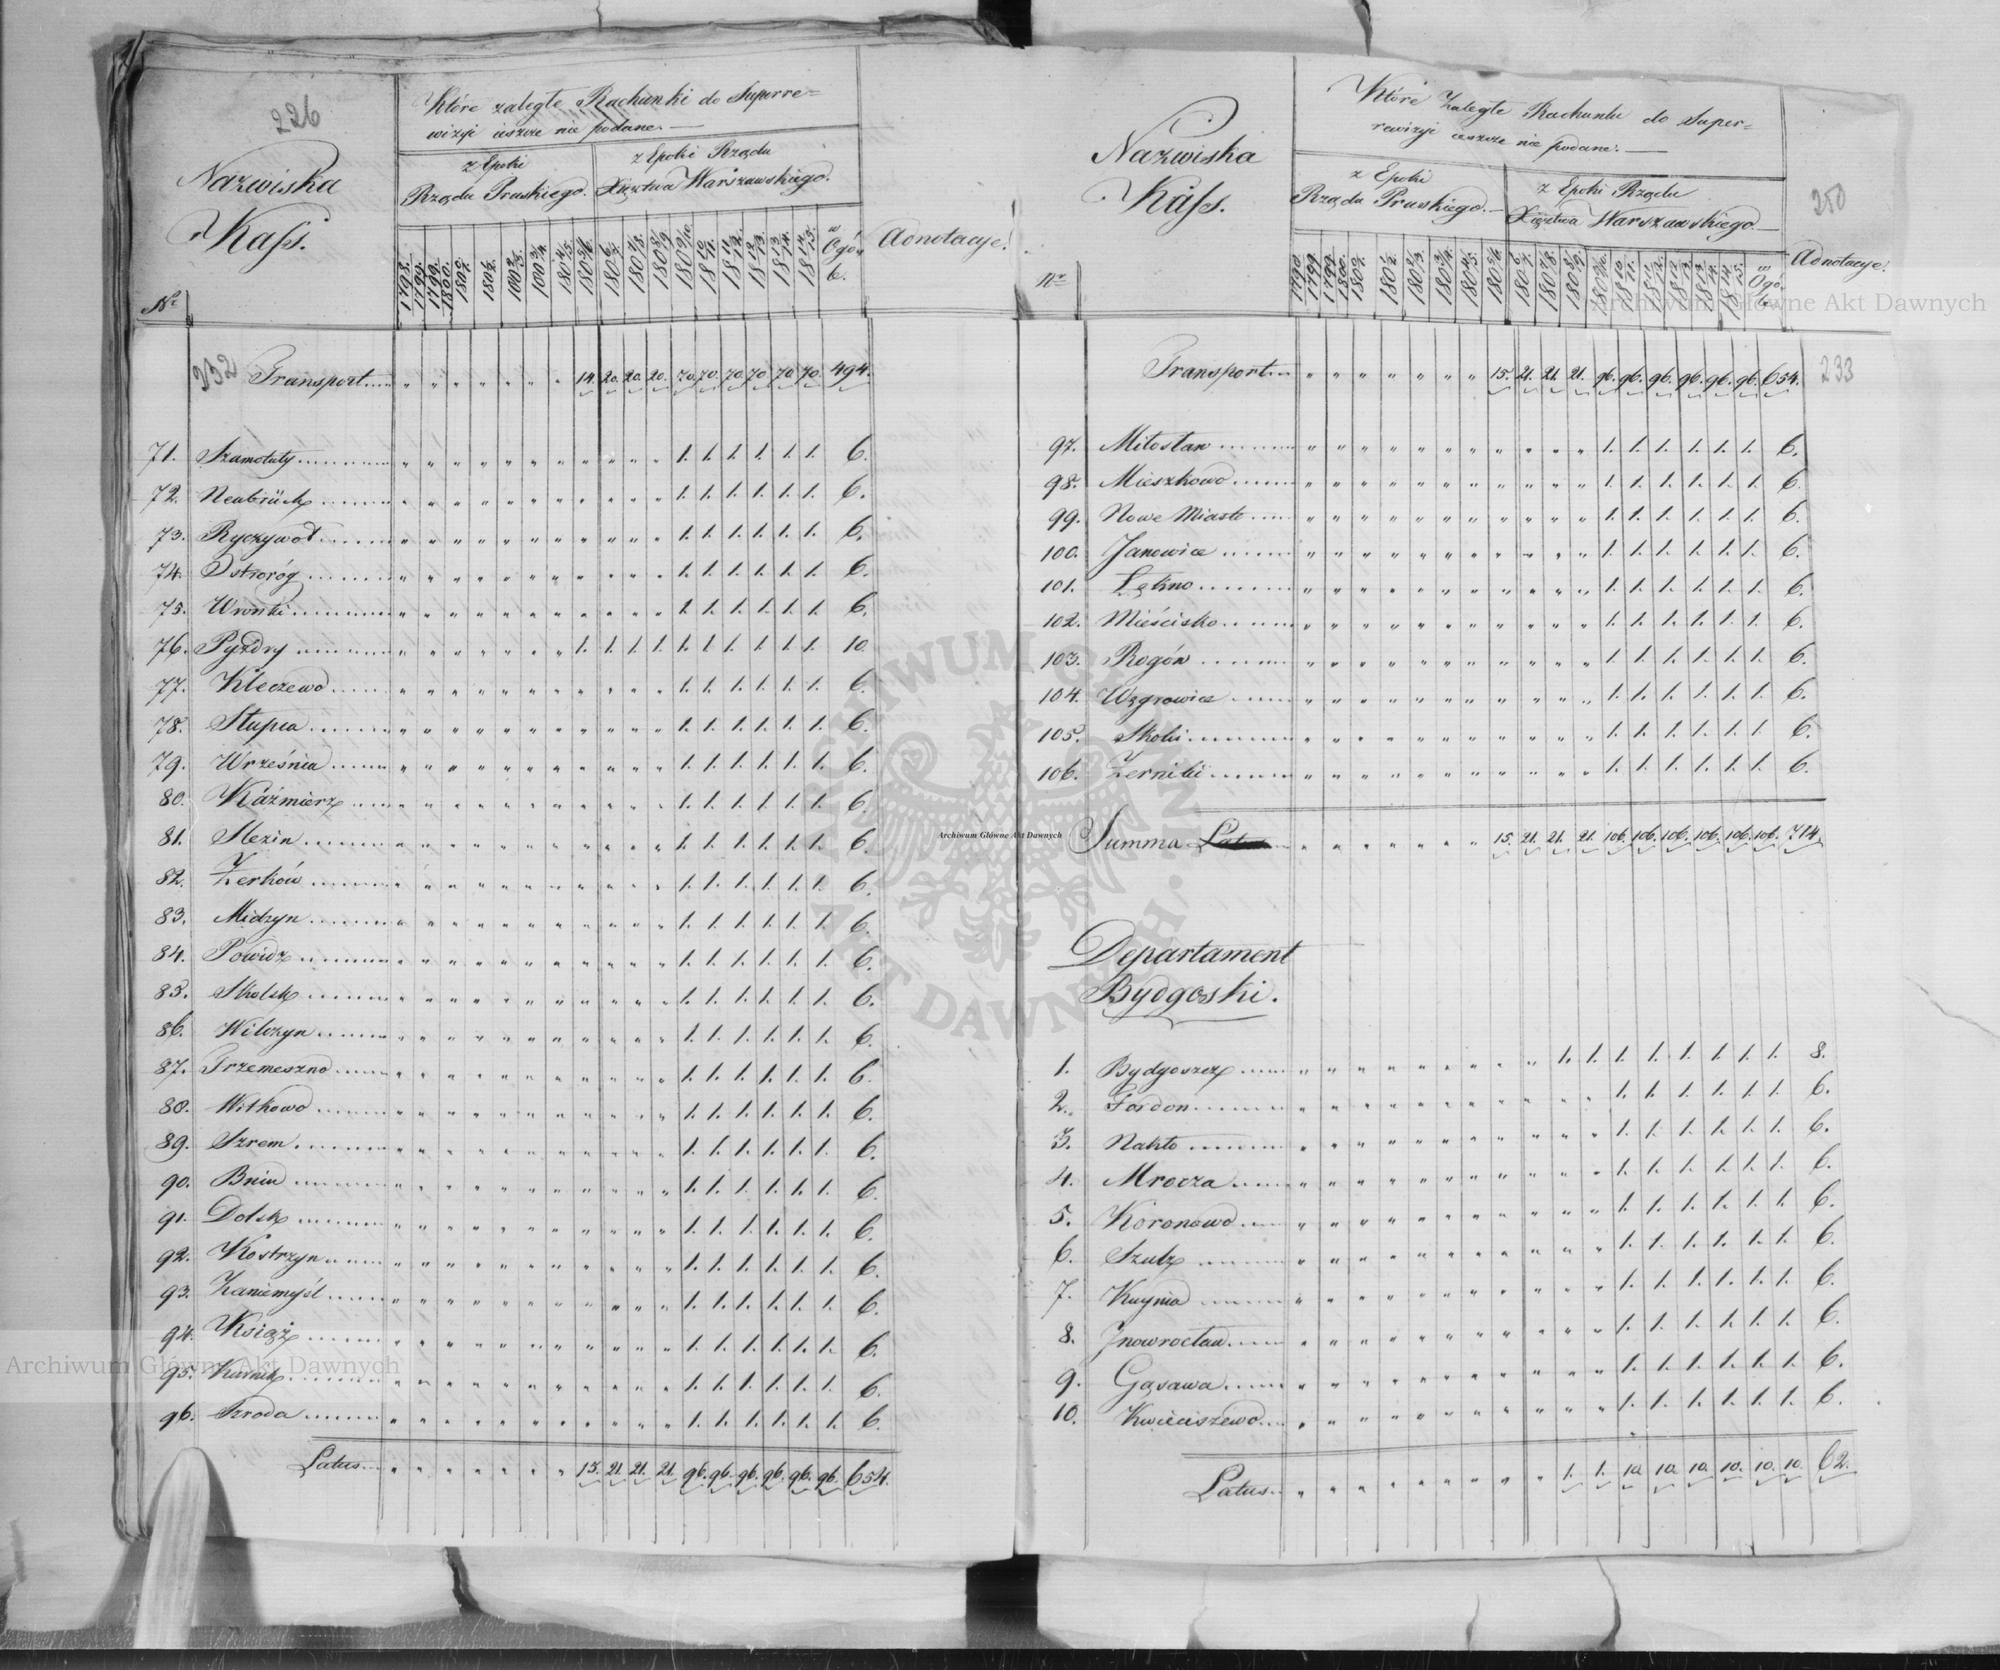 226
Nazwiska
Kass.
Nr
Które zaległe Rachunki do Superre=
wizyi ieszcze nie podane.
z Epoki
Rządu Pruskiego.
z Epoki Rządu
Xięztwa Warszawskiego.
w Ogóle
Adnotacye.
232 Transport 14. 20. 20. 20. 70. 70. 70. 70. 70. 70. 494.
71. Szamotuły 1. 1. 1. 1. 1. 1. 6.
72. Neubrück 1. 1. 1. 1. 1. 1. 6.
73. Ryczywoł 1. 1. 1. 1. 1. 1. 6.
74. Ostroróg 1. 1. 1. 1. 1. 1. 6.
75. Wronki 1. 1. 1. 1. 1. 1. 6.
76. Pyzdry 1. 1. 1. 1. 1. 1. 1. 1. 1. 1. 10.
77. Kleczewo 1. 1. 1. 1. 1. 1. 6.
78. Słupca 1. 1. 1. 1. 1. 1. 6.
79. Września 1. 1. 1. 1. 1. 1. 6.
80. Kaźmierz 1. 1. 1. 1. 1. 1. 6.
81. Slezin 1. 1. 1. 1. 1. 1. 6.
82. Zerków 1. 1. 1. 1. 1. 1. 6.
83. Midzyn 1. 1. 1. 1. 1. 1. 6.
84. Powidz 1. 1. 1. 1. 1. 1. 6.
85. Skulsk 1. 1. 1. 1. 1. 1. 6.
86. Wilczyn 1. 1. 1. 1. 1. 1. 6.
87. Trzemeszno 1. 1. 1. 1. 1. 1. 6.
88. Witkowo 1. 1. 1. 1. 1. 1. 6.
89. Szrem 1. 1. 1. 1. 1. 1. 6.
90. Bnin 1. 1. 1. 1. 1. 1. 6.
91. Dolsk 1. 1. 1. 1. 1. 1. 6.
92. Kostrzyn 1. 1. 1. 1. 1. 1. 6.
93. Zaniemyśl 1. 1. 1. 1. 1. 1. 6.
94. Książ 1. 1. 1. 1. 1. 1. 6.
95. Kurnik 1. 1. 1. 1. 1. 1. 6.
96. Szroda 1. 1. 1. 1. 1. 1. 6.
Latus 15. 21. 21. 21. 96. 96. 96. 96. 96. 96. 654.
Nazwiska
Kass.
Nr
Które Zaległe Rachunki do Super=
rewizyi ieszcze nie podane.
z Epoki
Rządu Pruskiego.
z Epoki Rządu
Xięztwa Warszawskiego
w Ogóle
Adnotacye.
250
Transport 15. 21. 21. 21. 96. 96. 96. 96. 96. 96. 654. 233
97. Miłosław 1. 1. 1. 1. 1. 1. 6.
98. Mieszkowo 1. 1. 1. 1. 1. 1. 6.
99. Nowe Miasto 1. 1. 1. 1. 1. 1. 6.
100. Janowice 1. 1. 1. 1. 1. 1. 6.
101. Łękno 1. 1. 1. 1. 1. 1. 6.
102. Mieścisko 1. 1. 1. 1. 1. 1. 6.
103. Rogóźn 1. 1. 1. 1. 1. 1. 6.
104. Wągrowiec 1. 1. 1. 1. 1. 1. 6.
105. Skoki 1. 1. 1. 1. 1. 1. 6.
106. Zerniki 1. 1. 1. 1. 1. 1. 6.
Summa Latus 15. 21. 21. 21. 106. 106. 106. 106. 106. 106. 714.
Departament
Bydgoski.
1. Bydgoszcz 1. 1. 1. 1. 1. 1. 1. 1. 8.
2. Fordon 1. 1. 1. 1. 1. 1. 6.
3. Nakło 1. 1. 1. 1. 1. 1. 6.
4. Mrocza 1. 1. 1. 1. 1. 1. 6.
5. Koronowo 1. 1. 1. 1. 1. 1. 6.
6. Szulz 1. 1. 1. 1. 1. 1. 6.
7. Kcynia 1. 1. 1. 1. 1. 1. 6.
8. Jnowrocław 1. 1. 1. 1. 1. 1. 6.
9. Gąsawa 1. 1. 1. 1. 1. 1. 6.
10. Kwieciszewo 1. 1. 1. 1. 1. 1. 6.
Latus 1. 1. 10. 10. 10. 10. 10. 10. 62.
Archiwum Główne Akt Dawnych
Archiwum Główne Akt Dawnych
Archiwum Główne Akt Dawnych